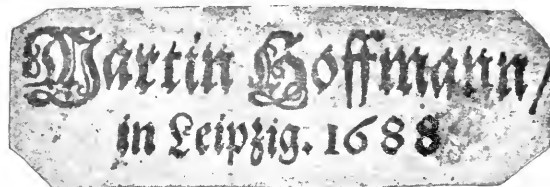 Martin Hoffmann/
in Leipzig. 1688